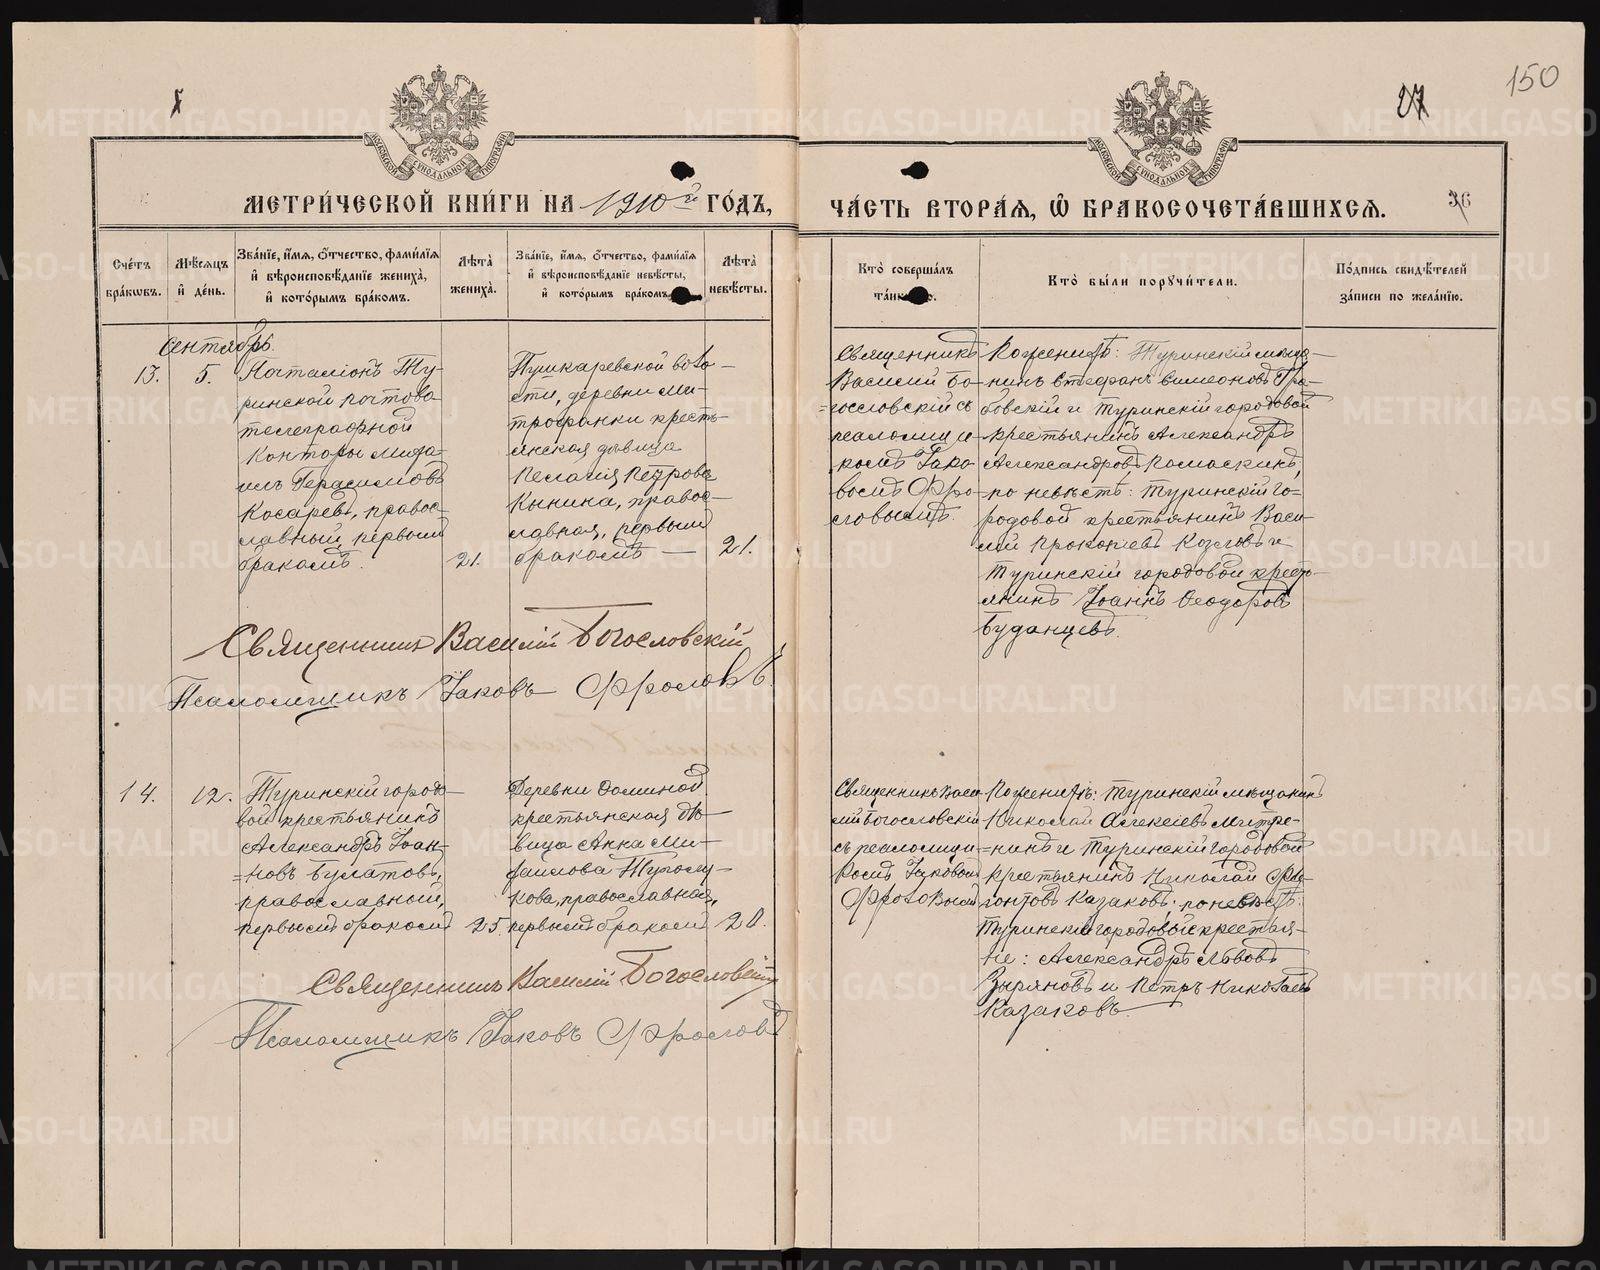 150
27
МЕТРИ́ЧЕСКОЙ КНИ́ГИ НА 1910й ГО́ДЪ,
ЧА́СТЬ ВТОРА́Я, Ѡ БРАКОСОЧЕТА́ВШИХСЯ.
36
Сче́тъ бра́кωвъ.
Мѣ́сяцъ и҆ де́нь.
Зва́нїе, и҆́мя, о҆́тчество, фами́лїя и҆ вѣроисповѣ́данїе жениха̀, и҆ кото́рымъ бра́комъ.
Лѣ́та жениха̀.
Зва́нїе, и҆́мя, о҆́тчество, фами́лїя и҆ вѣроисповѣ́данїе невѣ́сты, и҆ кото́рымъ бра́комъ.
Лѣ́та невѣ́сты.
Кто̀ соверша́лъ
Кто̀ бы́ли порꙋчи́тели.
По́дпись свидѣ́телей за́писи по жела́нїю.
Сентябрь.
13.
5.
Почталіонъ Ту-
ринской почтово
телеграфной
Конторы Миха-
илъ Герасимовъ
Косаревъ, правос-
лавный, первымъ
бракомъ.
21.
Пушкаревской воло-
сти, деревни Ми-
трофанки кресть-
янская дѣвица
Пелагія Петрова
Кынина, правос-
лавная, первымъ
бракомъ —
21.
Священникъ
Василій Бо-
=гословскій съ
псаломщи-
комъ Іако-
вомъ Фро-
ловымъ.
По женихѣ: Туринскій мѣща-
нинъ Стефанъ Симеоновъ Гра-
бовскій и Туринскій городовой
крестьянинъ Александръ
Александровъ Помаскинъ,
по невѣстѣ: Туринскій го-
родовой крестьянинъ Васи-
лій Прокопіевъ Козловъ и
Туринскій городовой кресть-
янинъ Іоаннъ Ѳеодоровъ
Буданцевъ.
Священникъ Василій Богословскій
Псаломщикъ Іаковъ Фроловъ.
14.
12.
Туринскій городо-
вой крестьянинъ
Александръ Іоан-
=новъ Булатовъ,
православный,
первымъ бракомъ
25.
Деревни Фоминой
крестьянская дѣ-
вица Анна Ми-
хаилова
кова, православная,
первымъ бракомъ
20.
Священникъ Васи-
лій Богословскій
съ псаломщи-
комъ Іаковомъ
Фроловымъ
По женихѣ: Туринскій мѣщанинъ
Николай Алексіевъ Митре-
=нинъ и Туринскій городовой
крестьянинъ Николай Фле-
гонтовъ Казаковъ; по невѣстѣ:
Туринскіе городовые крестья-
не: Александръ Львовъ
Зыряновъ и Петръ Николаевъ
Казаковъ.
Священникъ Василій Богословскій
Псаломщикъ Іаковъ Фроловъ
METRIKI.GASO-URAL.RU